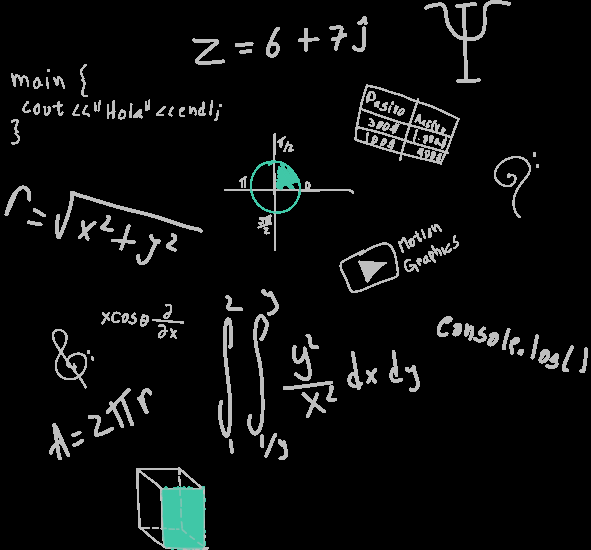 z = 6 + 7ĵ
Ψ
main {
cout << "Hola" << endl;
}
Pasivo Activo
π/2
π 0
3π/2
r = √x² + y²
Motion
Graphics
x cos θ ∂/∂x
∫₁² ∫₁/y^y y²/x² dx dy
console.log()
A = 2πr